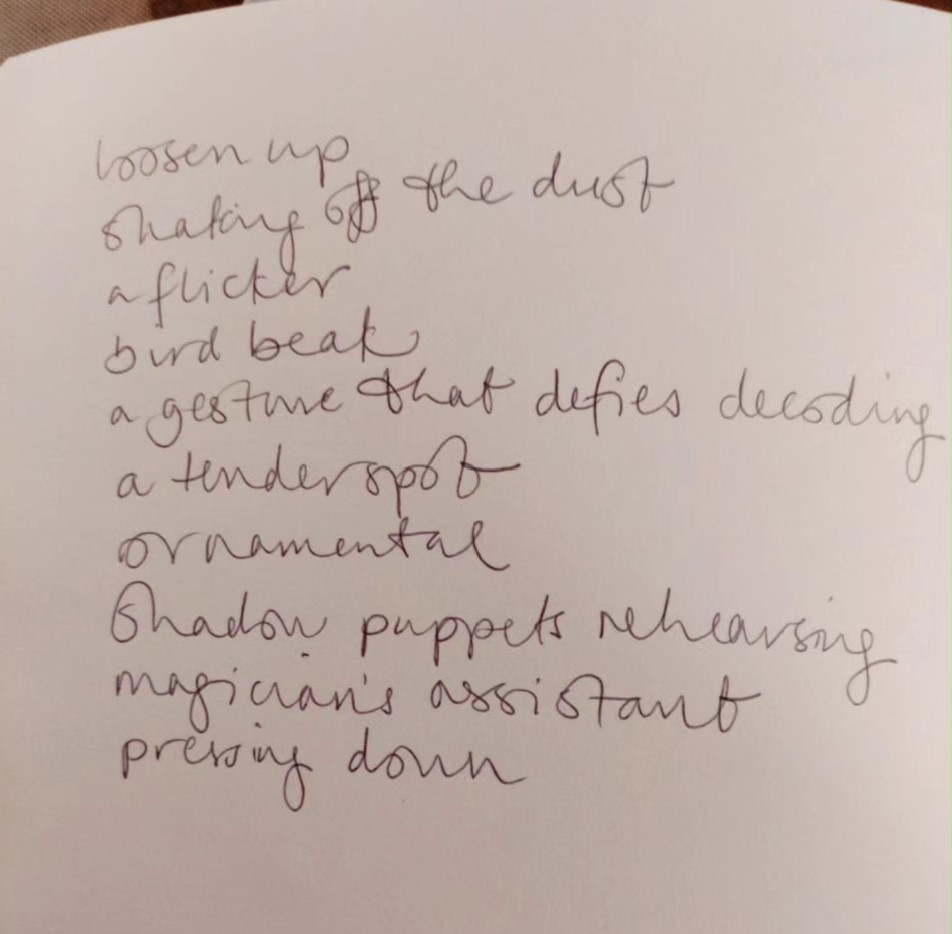 loosen up
shaking off the dust
a flicker
bird beak
a gesture that defies decoding
a tender spot
ornamental
Shadow puppets rehearsing
magician's assistant
pressing down